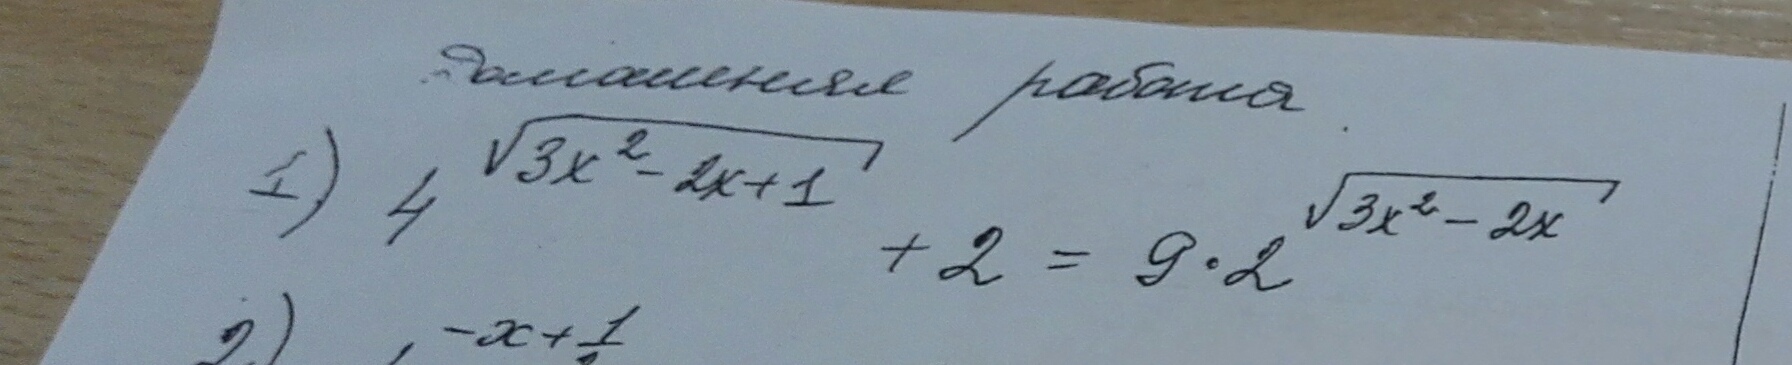 Домашняя работа
1) 4^{√(3x² - 2x + 1)} + 2 = 9 · 2^{√(3x² - 2x)}
2) -x + 1